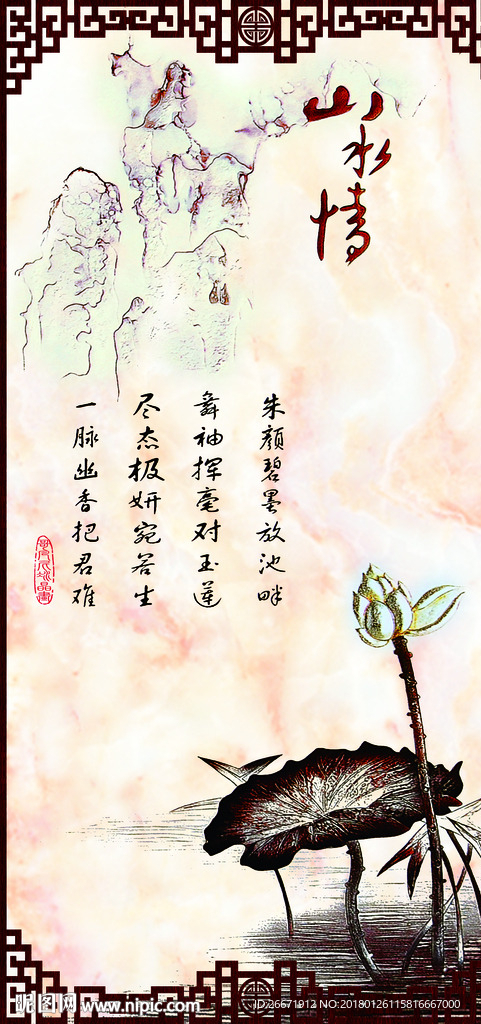 山水情
朱颜碧墨放池畔
舞袖挥毫对玉莲
尽态极妍宛若生
一脉幽香把君难
昵图网 www.nipic.com
ID:26671912 NO:20180126115816667000